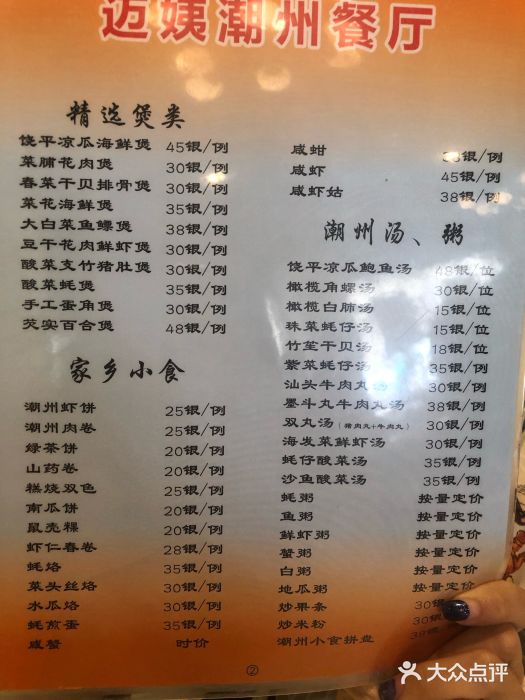 迈姨潮州餐厅
精选煲类
饶平凉瓜海鲜煲 45银/例
菜脯花肉煲 30银/例
春菜干贝排骨煲 30银/例
菜花海鲜煲 35银/例
大白菜鱼鳔煲 38银/例
豆干花肉鲜虾煲 30银/例
酸菜支竹猪肚煲 30银/例
酸菜蚝煲 35银/例
手工蛋角煲 30银/例
芡实百合煲 48银/例
家乡小食
潮州虾饼 25银/例
潮州肉卷 25银/例
绿茶饼 20银/例
山药卷 20银/例
糕烧双色 25银/例
南瓜饼 20银/例
鼠壳粿 20银/例
虾仁春卷 28银/例
蚝烙 35银/例
菜头丝烙 30银/例
水瓜烙 30银/例
蚝煎蛋 35银/例
咸蟹 时价
咸蚶 银/例
咸虾 45银/例
咸虾姑 38银/例
潮州汤、粥
饶平凉瓜鲍鱼汤 48银/位
橄榄角螺汤 30银/位
橄榄白肺汤 15银/位
珠菜蚝仔汤 15银/位
竹笙干贝汤 18银/位
紫菜蚝仔汤 35银/例
汕头牛肉丸汤 30银/例
墨斗丸牛肉丸汤 38银/例
双丸汤（猪肉丸+牛肉丸） 30银/例
海发菜鲜虾汤 30银/例
蚝仔酸菜汤 35银/例
沙鱼酸菜汤 35银/例
蚝粥 按量定价
鱼粥 按量定价
鲜虾粥 按量定价
蟹粥 按量定价
白粥 按量定价
地瓜粥 按量定价
炒果条 30银
炒米粉 30银
潮州小食拼盘
②
大众点评